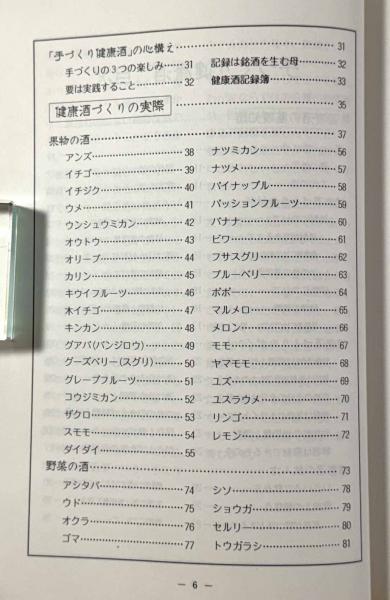 「手づくり健康酒」の心構え……31
手づくりの3つの楽しみ……31
要は実践すること……32
記録は銘酒を生む母……32
健康酒記録簿……33
健康酒づくりの実際……35
果物の酒……37
アンズ……38
イチゴ……39
イチジク……40
ウメ……41
ウンシュウミカン……42
オウトウ……43
オリーブ……44
カリン……45
キウイフルーツ……46
木イチゴ……47
キンカン……48
グアバ(バンジロウ)……49
グーズベリー(スグリ)……50
グレープフルーツ……51
コウジミカン……52
ザクロ……53
スモモ……54
ダイダイ……55
ナツミカン……56
ナツメ……57
パイナップル……58
パッションフルーツ……59
バナナ……60
ビワ……61
フサスグリ……62
ブルーベリー……63
ポポー……64
マルメロ……65
メロン……66
モモ……67
ヤマモモ……68
ユズ……69
ユスラウメ……70
リンゴ……71
レモン……72
野菜の酒……73
アシタバ……74
ウド……75
オクラ……76
ゴマ……77
シソ……78
ショウガ……79
セルリー……80
トウガラシ……81
— 6 —